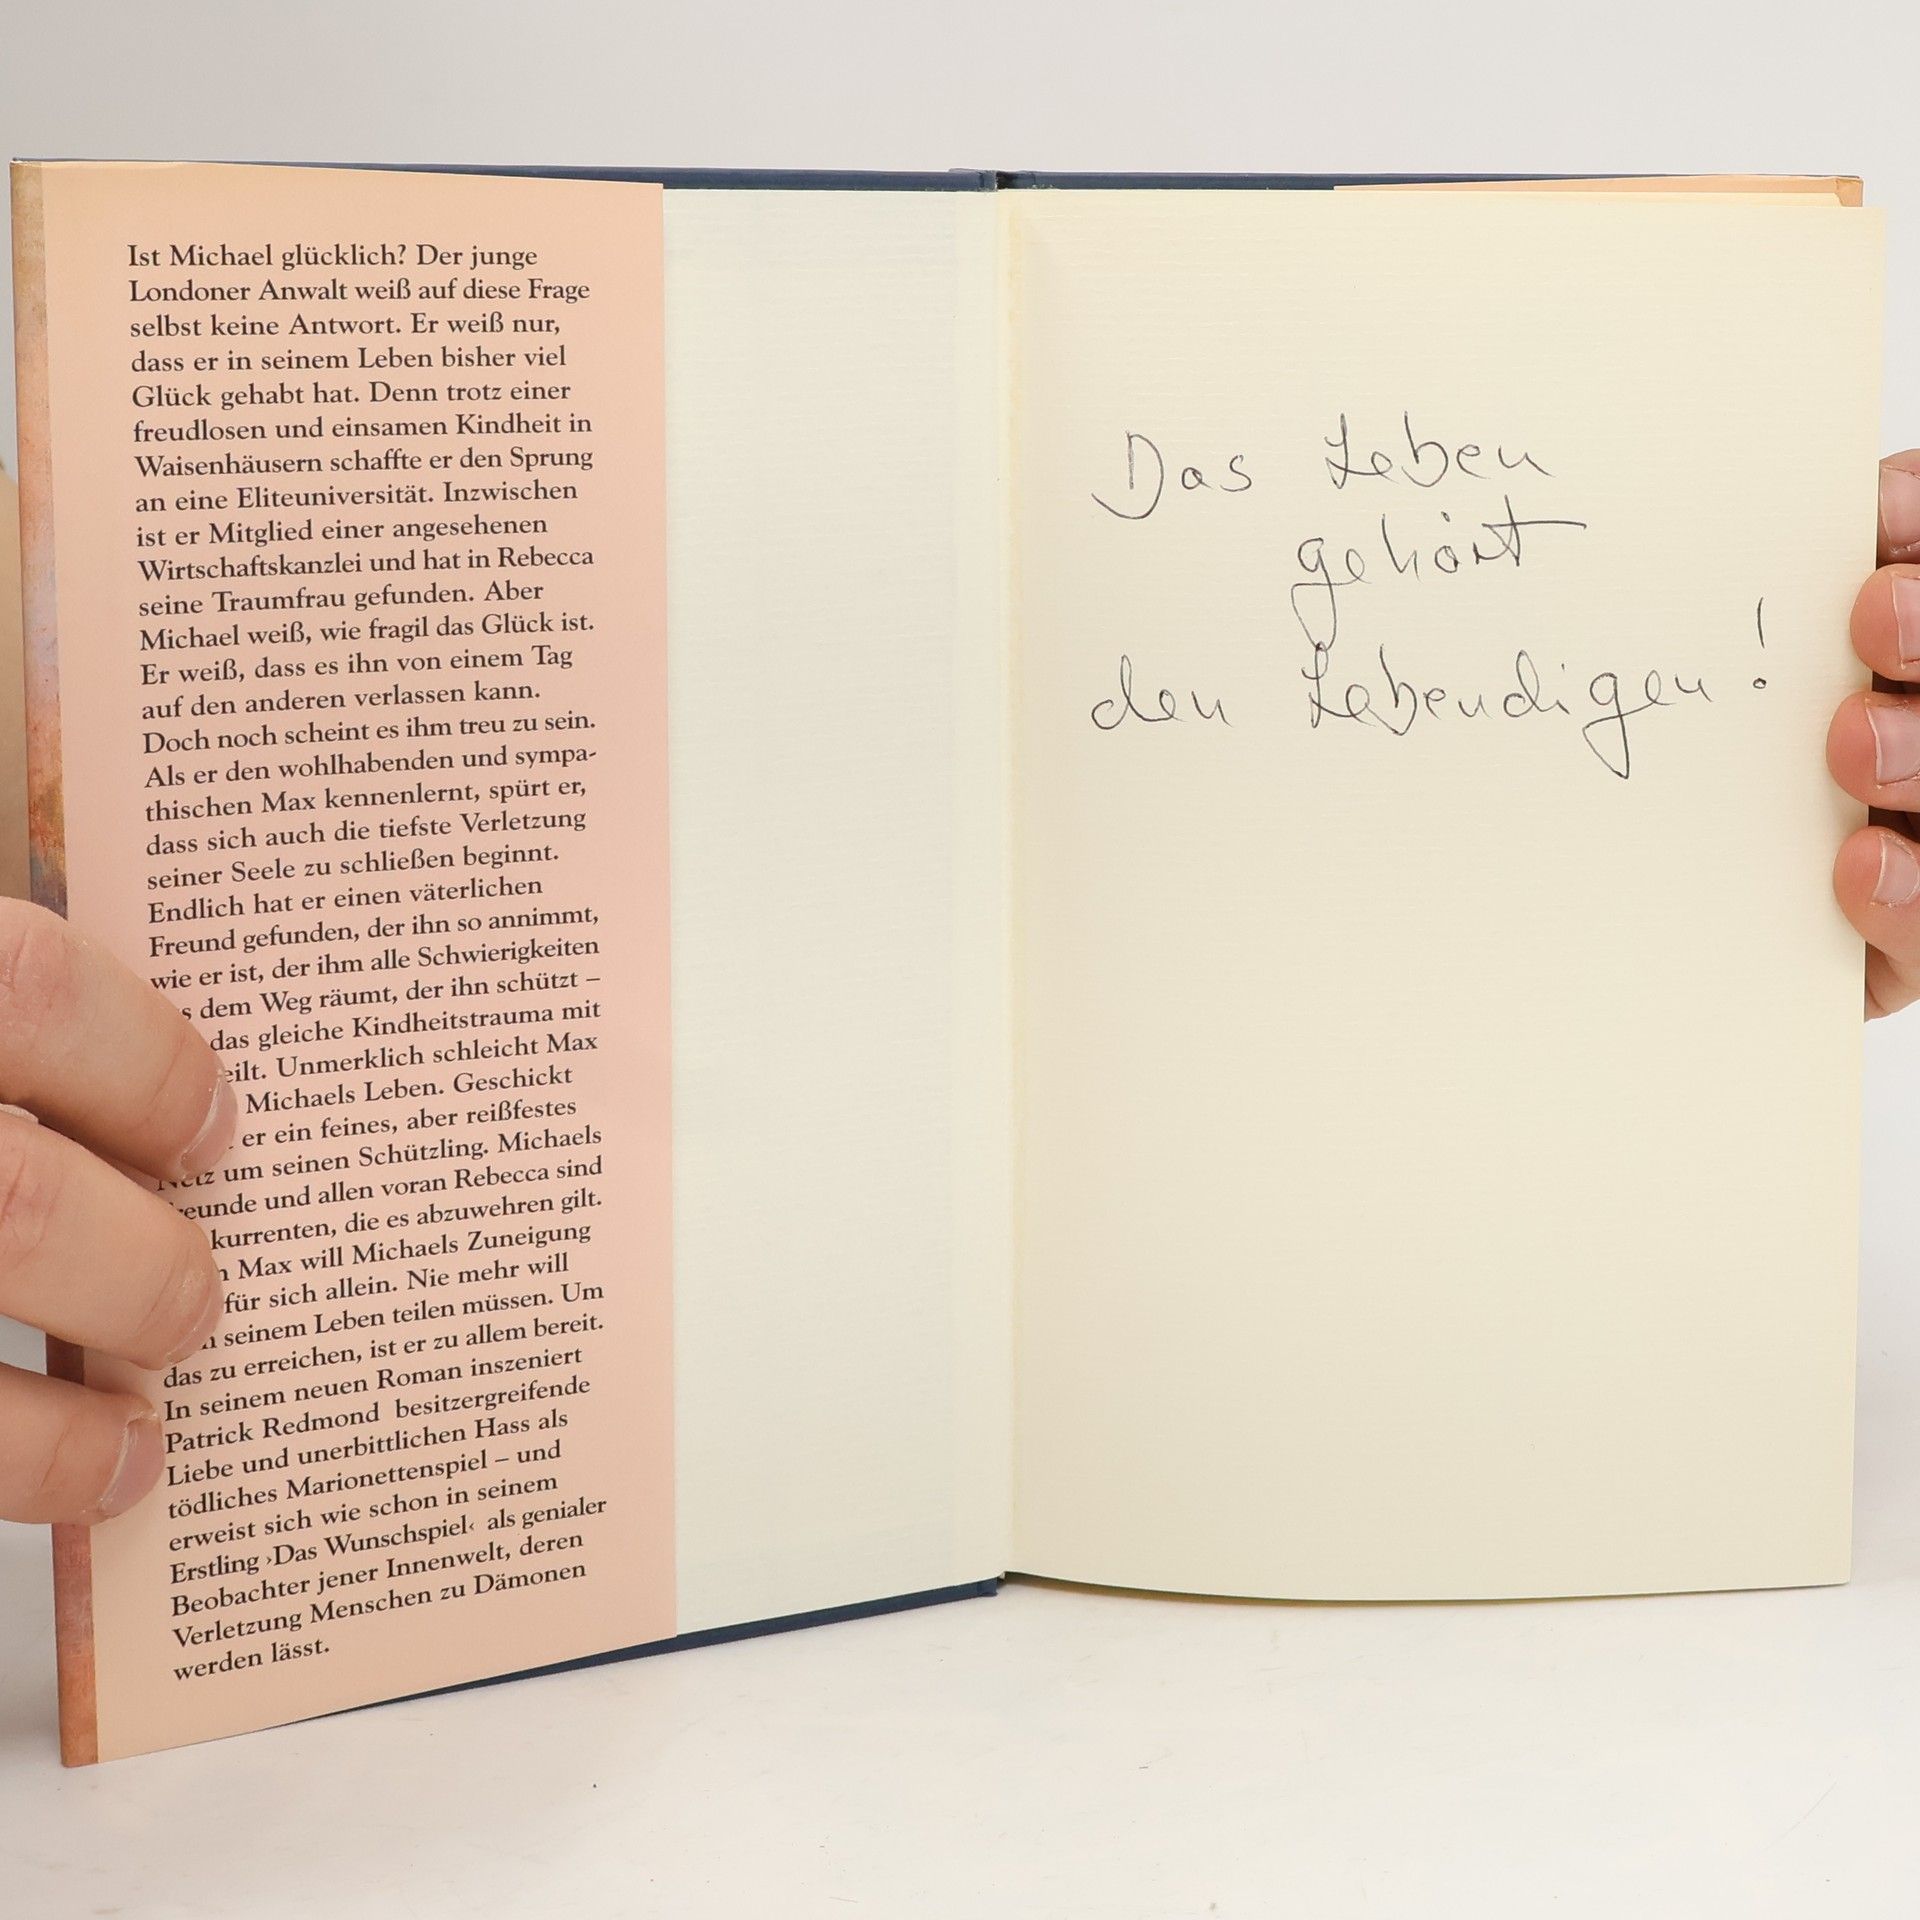 Ist Michael glücklich? Der junge
Londoner Anwalt weiß auf diese Frage
selbst keine Antwort. Er weiß nur,
dass er in seinem Leben bisher viel
Glück gehabt hat. Denn trotz einer
freudlosen und einsamen Kindheit in
Waisenhäusern schaffte er den Sprung
an eine Eliteuniversität. Inzwischen
ist er Mitglied einer angesehenen
Wirtschaftskanzlei und hat in Rebecca
seine Traumfrau gefunden. Aber
Michael weiß, wie fragil das Glück ist.
Er weiß, dass es ihn von einem Tag
auf den anderen verlassen kann.
Doch noch scheint es ihm treu zu sein.
Als er den wohlhabenden und sympa-
thischen Max kennenlernt, spürt er,
dass sich auch die tiefste Verletzung
seiner Seele zu schließen beginnt.
Endlich hat er einen väterlichen
Freund gefunden, der ihn so annimmt,
wie er ist, der ihm alle Schwierigkeiten
dem Weg räumt, der ihn schützt –
das gleiche Kindheitstrauma mit
Unmerklich schleicht Max
Michaels Leben. Geschickt
er ein feines, aber reißfestes
Netz um seinen Schützling. Michaels
und allen voran Rebecca sind
die es abzuwehren gilt.
Max will Michaels Zuneigung
für sich allein. Nie mehr will
seinem Leben teilen müssen. Um
das zu erreichen, ist er zu allem bereit.
In seinem neuen Roman inszeniert
Patrick Redmond besitzergreifende
Liebe und unerbittlichen Hass als
tödliches Marionettenspiel – und
erweist sich wie schon in seinem
Erstling ›Das Wunschspiel‹ als genialer
Beobachter jener Innenwelt, deren
Verletzung Menschen zu Dämonen
werden lässt.
Das Leben
gehört
den Lebendigen!